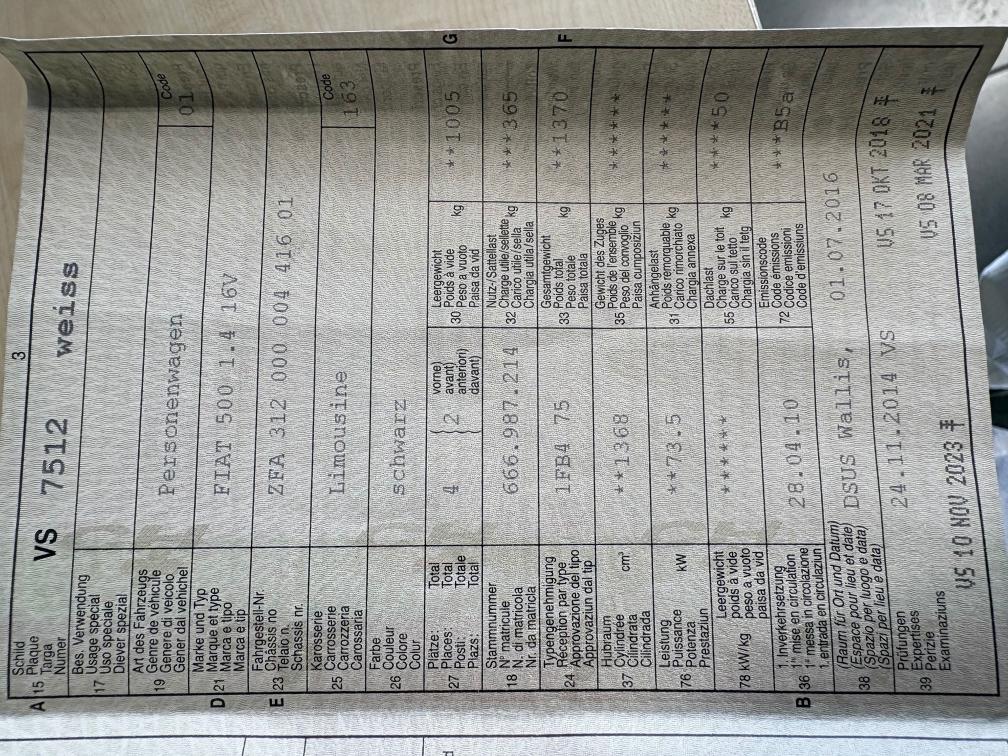 3
Schild
A 15 Plaque VS 7512 weiss
Targa
Numer
Bes. Verwendung
17 Usage spécial
Uso speciale
Diever spezial
Art des Fahrzeugs
19 Genre de véhicule Personenwagen Code
Genere di veicolo 01
Gener dal vehichel
Marke und Typ
D 21 Marque et type FIAT 500 1.4 16V
Marca e tipo
Marca e tip
Fahrgestell-Nr.
E 23 Châssis no ZFA 312 000 004 416 01
Telaio n.
Schassis nr.
Karosserie
25 Carrosserie Limousine Code
Carrozzeria 163
Carossaria
Farbe
26 Couleur schwarz
Colore
Colur
Plätze: Total vorne)
27 Places: Total 4 2 avant)
Posti: Totale anteriori)
Plazs: Total davant)
Leergewicht
30 Poids à vide kg **1005 G
Peso a vuoto
Paisa da vid
Stammnummer
18 N° matricule 666.987.214
N. di matricola
Nr. da matricla
Nutz-/Sattellast
32 Charge utile/sellette kg ***365
Carico utile/sella
Chargia utila/sella
Typengenehmigung
24 Réception par type 1FB4 75
Approvazione del tipo
Approvaziun dal tip
Gesamtgewicht
33 Poids total kg **1370 F
Peso totale
Paisa totala
Hubraum
37 Cylindrée cm³ **1368
Cilindrata
Cilindrada
Gewicht des Zuges
35 Poids de l'ensemble kg ******
Peso del convoglio
Paisa cumposiziun
Leistung
76 Puissance kW **73.5
Potenza
Prestaziun
Anhängelast
31 Poids remorquable kg ******
Carico rimorchiato
Chargia annexa
Leergewicht
78 kW/kg poids à vide ******
peso a vuoto
paisa da vid
Dachlast
55 Charge sur le toit kg ****50
Carico sul tetto
Chargia sin il tetg
1. Inverkehrsetzung
B 36 1re mise en circulation 28.04.10
1a messa in circolazione
1. entrada en circulaziun
Emissionscode
72 Code émissions ***B5a
Codice emissioni
Code d'emissiuns
(Raum für Ort und Datum)
38 (Espace pour lieu et date) DSUS Wallis, 01.07.2016
(Spazio per luogo e data)
(Spazi per lieu e data)
Prüfungen
39 Expertises 24.11.2014 VS VS 17 OKT 2018
Perizie
Examinaziuns VS 10 NOV 2023 VS 08 MAR 2021